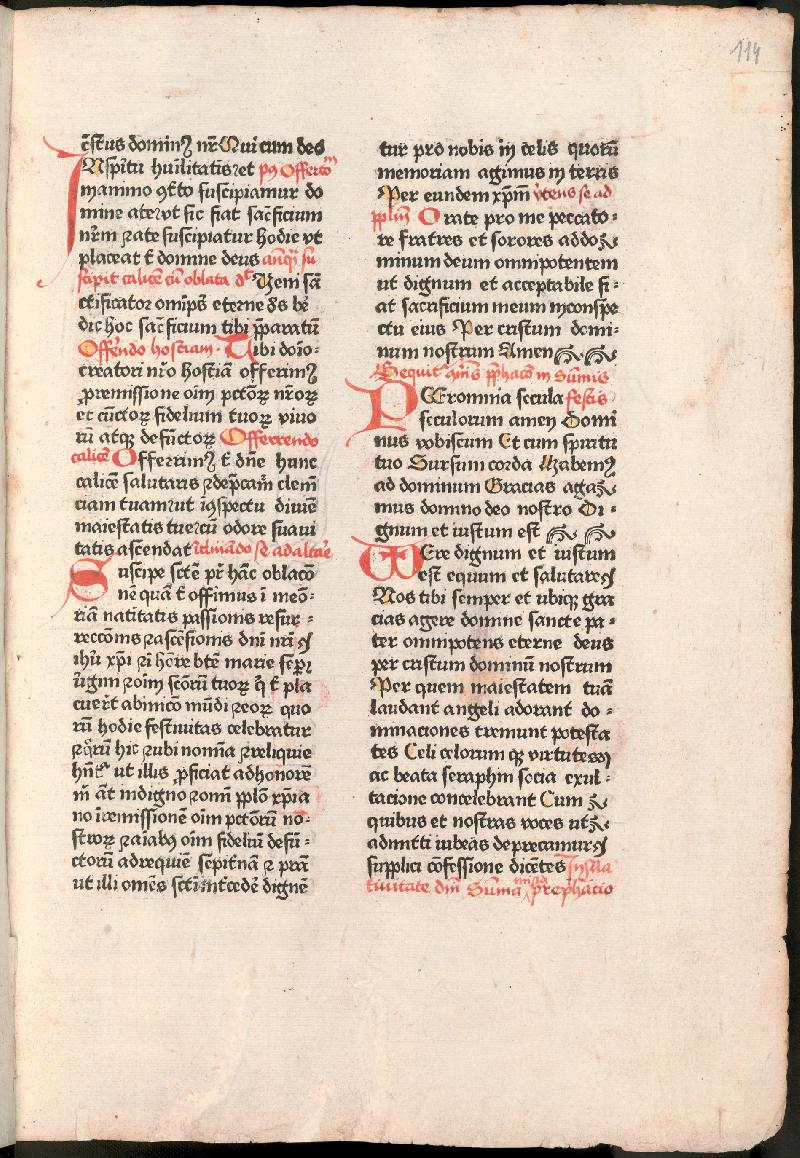 114
c̄stus domin⁹ nr̄ Qui cum deo
IN sp̄itu hūilitatis et p⁹ Offertoᵐ
in animo 9t̄to suscipiamur do
mine a te ⁊ vt sic fiat sac̄ficium
nr̄m ⁊ a te suscipiatur hodie vt
placeat t̄ domne deus
scipit calicē cū oblata dᵗ Veni sā
ctificator om̄ips̄ eterne ds̄ bē
dic hoc sac̄ficium tibi p̄paratū
Offērendo hostiam Tibi dōīo-
creatori nr̄o hostiā offerim⁹
ꝓ remissione oīm pctōꝝ nr̄oꝝ
et cūctoꝝ fidelium tuoꝝ viuo
rū atqꝫ defūctoꝝ Offerrendo
calicē Offerrim⁹ t̄ dn̄e hunc
calicē salutaris ⁊ dep̄cam̄ clem̄
ciam tuam ⁊ ut ī 9spectu diuīe
maiestatis tue cū odore suaui
tatis ascendat Iclinādo se ad altāe
Suscipe sctē pr̄ hāc oblacō
nē quā t̄ offīmus ī meō-
riā natitatis passionis resur-
reccōnis ⁊ ascēsionis dn̄i nr̄i
ihū xp̄i ⁊ ī hōre btē marie sēp
ūgīnī ⁊ oīm scōrū tuoꝝ q̄ t̄ pla
cuer̄t ab inico mūdi ⁊ eoꝝ quo
rū hodie festiuitas celebratur
⁊ q̄rū hic ⁊ ubi nomīa ⁊ reliquie
hn̄t ut illis ꝓficiat ad honorē
m̄ āt indigno ⁊ om̄ pplō xp̄ia
no ī remissionē oīm pctōrū no-
stroꝝ ⁊ aīabꝫ oīm fideliū defū-
ctorū ad requiē sēpit̄nā ⁊ p̄rā
ut illi omēs sctī int̄cedē dignē
tur pro nobis in celis quorū
memoriam agimus in terris
Per eundem xp̄m v̄tens se ad
pplūm Orate pro me peccato-
re fratres et sorores ad dom̄
minum deum omnipotentem
ut dignum et acceptabile fi-
at sacrificium meum in conspe
ctu eius Per cristum domi-
num nostrum Amen
Sequit̄ p̄phacō in sūmis
PEr omnia secula festis
seculorum amen Domi
nus vobiscum Et cum spiritu
tuo Sursum corda Habem⁹
ad dominum Gracias aga
mus domino deo nostro Di-
gnum et iustum est
VEre dignum et iustum
est equum et salutare
Nos tibi semper et ubiqꝫ gra
cias agere domne sancte pa-
ter omnipotens eterne deus
per cristum dominū nostrum
Per quem maiestatem tuā
laudant angeli adorant do-
minaciones tremunt potesta
tes Celi celorum qꝫ virtutes
ac beata seraphin socia exul-
tacione concelebrant Cum
quibus et nostras voces ut
admitti iubeas deprecamur
supplici cōfessione dicētes In sta
tiuitate dn̄i Sūma missa prephacio